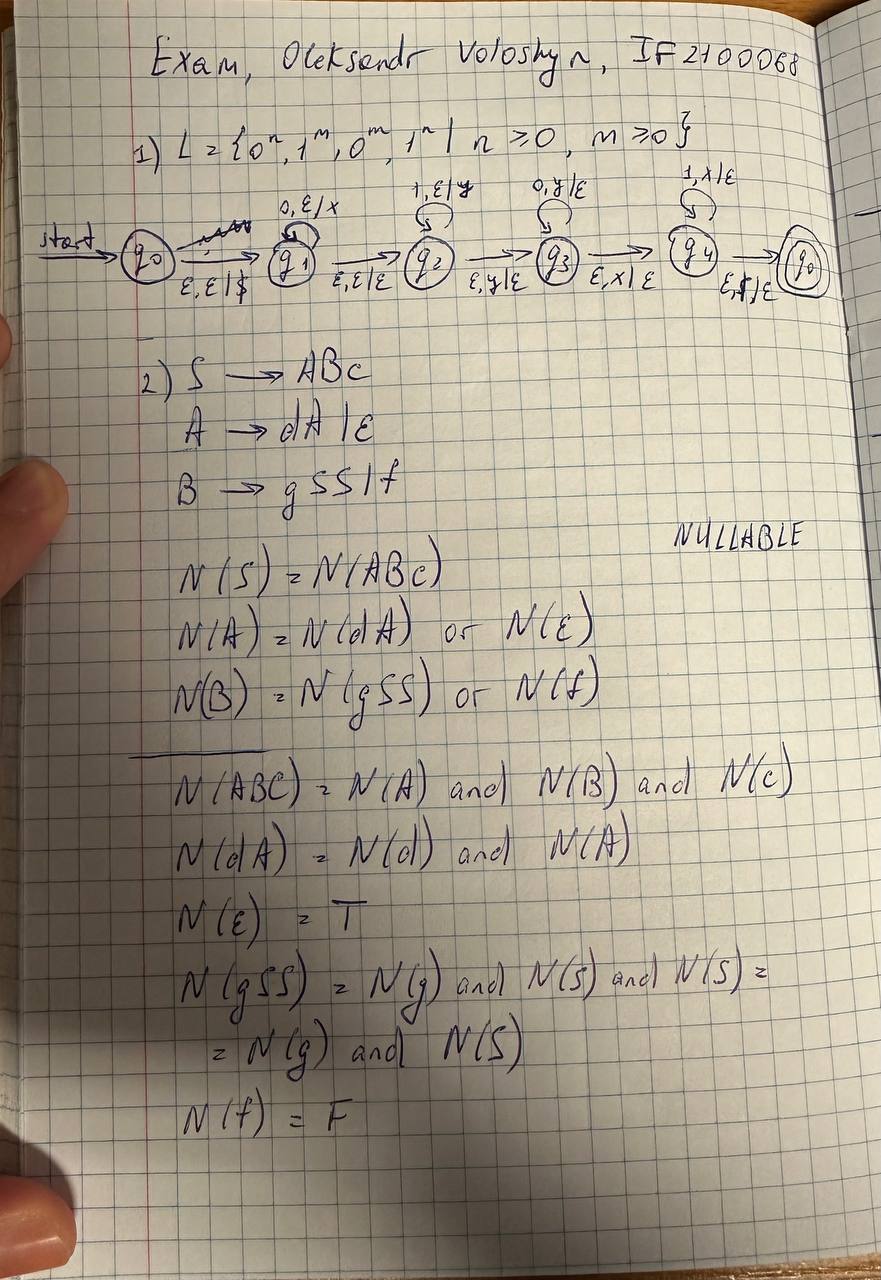 Exam, Oleksandr Voloshyn, IF2100068
1) L = {0ⁿ, 1ᵐ, 0ᵐ, 1ⁿ | n ≥ 0, m ≥ 0}
0,ε/x 1,ε/y 0,y/ε 1,x/ε
start q₀ q₁ q₂ q₃ q₄
ε,ε|$ ε,ε|ε ε,y|ε ε,x|ε ε,$|ε
2) S → ABc
A → dA | ε
B → gSS | f
NULLABLE
N(S) = N(ABc)
N(A) = N(dA) or N(ε)
N(B) = N(gSS) or N(f)
N(ABC) = N(A) and N(B) and N(c)
N(dA) = N(d) and N(A)
N(ε) = T
N(gSS) = N(g) and N(S) and N(S) =
= N(g) and N(S)
N(f) = F